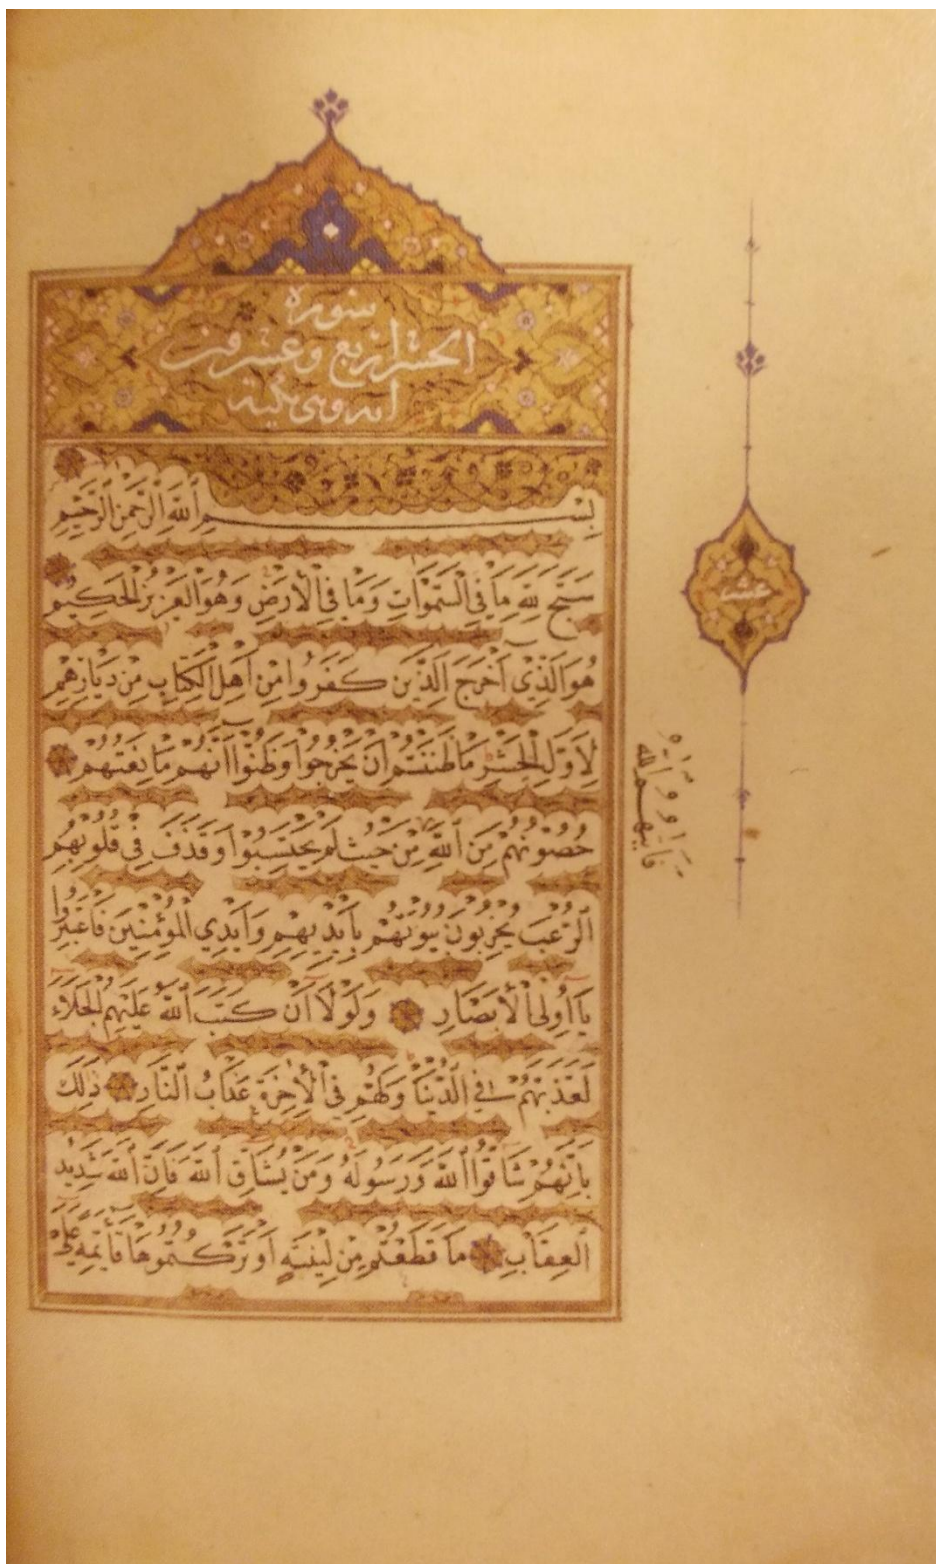 سورة
الحشر اربع وعشرون
اية وهى
بِسْمِ اللَّهِ الرَّحْمٰنِ الرَّحِيمِ
سَبَّحَ لِلَّهِ مَا فِي السَّمٰوَاتِ وَمَا فِي الْاَرْضِ وَهُوَ الْعَزِيزُ الْحَكِيمُ
هُوَ الَّذِي اَخْرَجَ الَّذِينَ كَفَرُوا مِنْ اَهْلِ الْكِتَابِ مِنْ دِيَارِهِمْ
لِاَوَّلِ الْحَشْرِ مَا ظَنَنْتُمْ اَنْ يَخْرُجُوا وَظَنُّوا اَنَّهُمْ مَانِعَتُهُمْ
حُصُونُهُمْ مِنَ اللَّهِ مِنْ حَيْثُ لَمْ يَحْتَسِبُوا وَقَذَفَ فِي قُلُوبِهِمُ
الرُّعْبَ يُخْرِبُونَ بُيُوتَهُمْ بِاَيْدِيهِمْ وَاَيْدِي الْمُؤْمِنِينَ فَاعْتَبِرُوا
يَا اُولِي الْاَبْصَارِ وَلَوْلَا اَنْ كَتَبَ اللَّهُ عَلَيْهِمُ الْجَلَاءَ
لَعَذَّبَهُمْ فِي الدُّنْيَا وَلَهُمْ فِي الْاٰخِرَةِ عَذَابُ النَّارِ ذٰلِكَ
بِاَنَّهُمْ شَاقُّوا اللَّهَ وَرَسُولَهُ وَمَنْ يُشَاقِّ اللَّهَ فَاِنَّ اللَّهَ شَدِيدُ
الْعِقَابِ مَا قَطَعْتُمْ مِنْ لِينَةٍ اَوْ تَرَكْتُمُوهَا قَائِمَةً عَلَى
عشر
فَاَتٰيهُمُ اللَّهُ